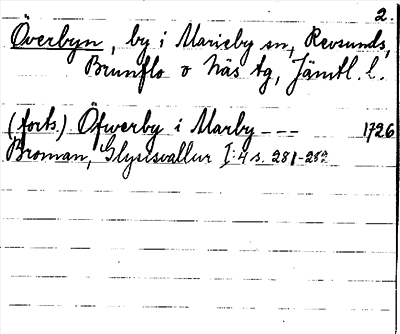 2.
Överbyn, by i Marieby sn, Revsunds,
Brunflo o Näs tg, Jämtl. l.
(forts.) Öfwerby i Marby --- 1726
Broman, Glysisvallur I:4 s. 281-282